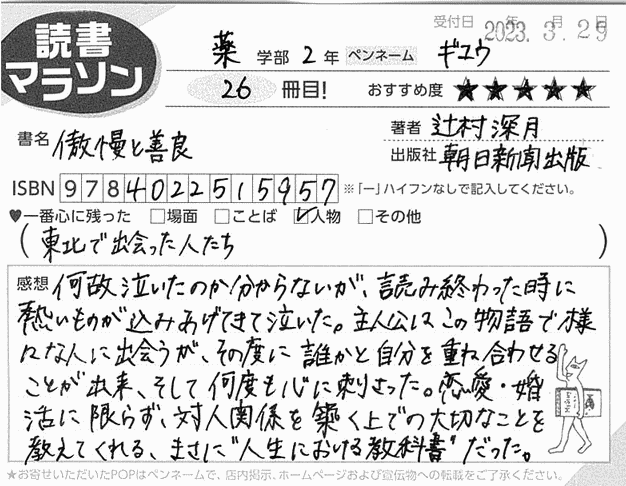 読書
マラソン
受付日 2023年3月29日
薬 学部 2 年 ペンネーム ギユウ
26 冊目! おすすめ度 ★★★★★
書名 傲慢と善良
著者 辻村深月
出版社 朝日新聞出版
ISBN 9784022515957 ※「ー」ハイフンなしで記入してください。
♥一番心に残った □場面 □ことば ☑人物 □その他
(東北で出会った人たち)
感想 何故泣いたのか分からないが、読み終わった時に
熱いものが込みあげてきて泣いた。主人公はこの物語で様
々な人に出会うが、その度に誰かと自分を重ね合わせる
ことが出来、そして何度も心に刺さった。恋愛・婚
活に限らず、対人関係を築く上での大切なことを
教えてくれる、まさに"人生における教科書"だった。
★お寄せいただいたPOPはペンネームで、店内掲示、ホームページおよび宣伝物への転載をご了承ください。